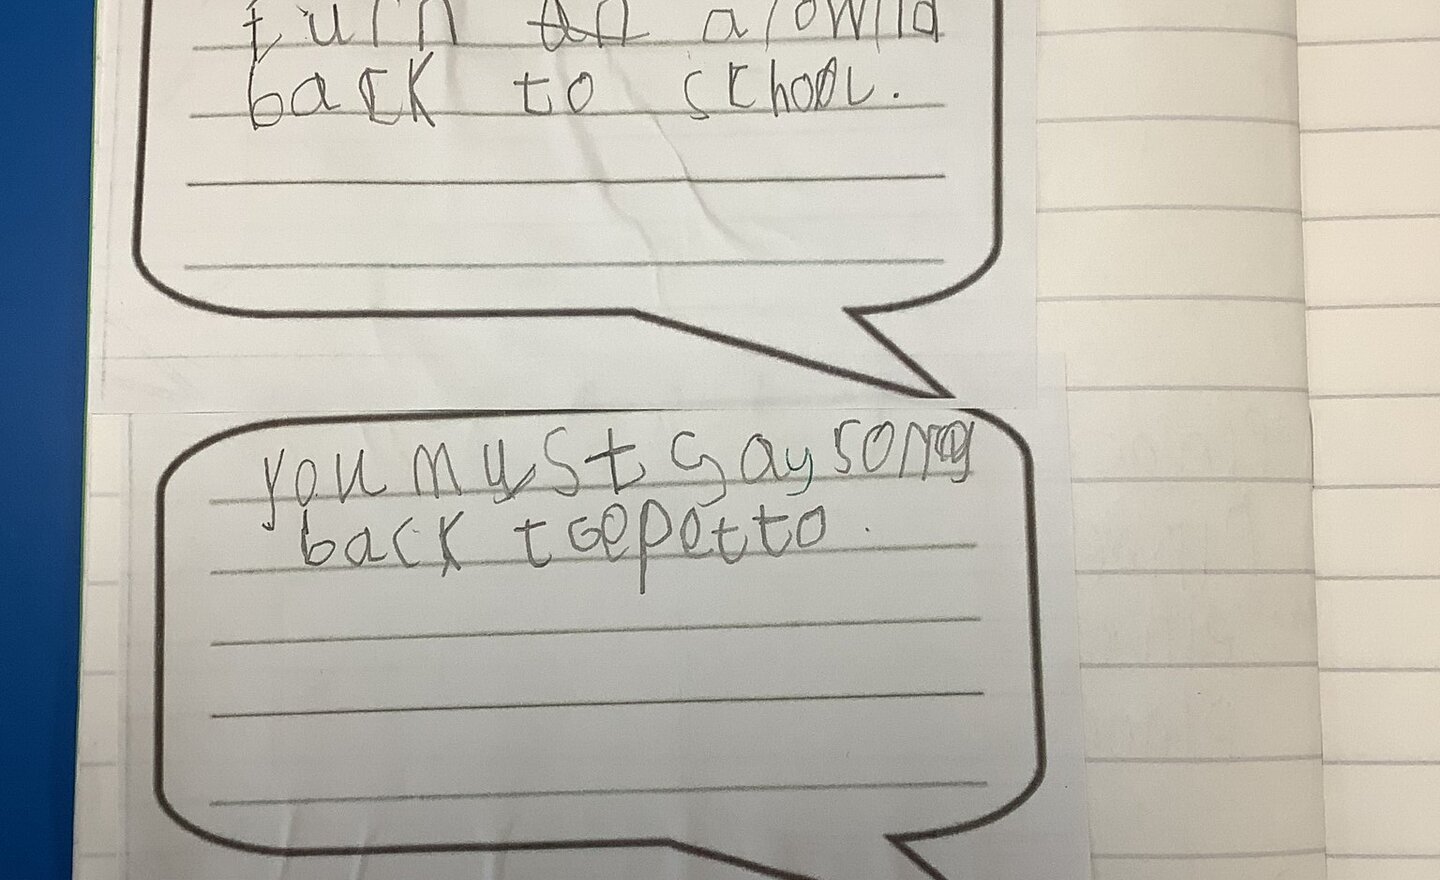 turn arownd
back to school.
you must say song
back toepetto.